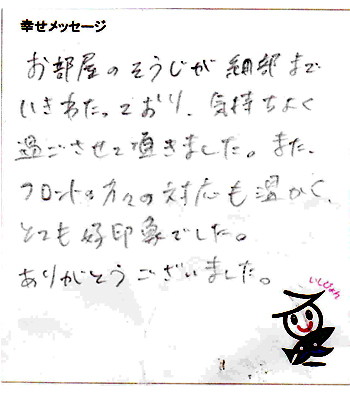 幸せメッセージ
お部屋のそうじが細部まで
いきわたっており、気持ちよく
過ごさせて頂きました。また、
フロントの方々の対応も温かく、
とても好印象でした。
ありがとうございました。